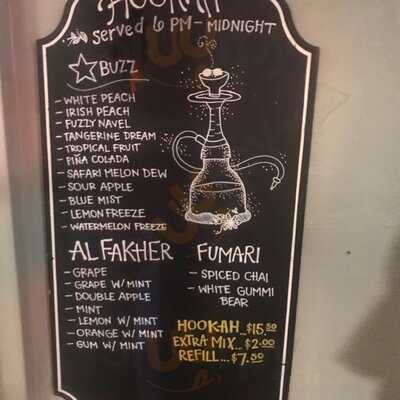 HOOKAH
served 6 PM - MIDNIGHT
BUZZ
- WHITE PEACH
- IRISH PEACH
- FUZZY NAVEL
- TANGERINE DREAM
- TROPICAL FRUIT
- PIÑA COLADA
- SAFARI MELON DEW
- SOUR APPLE
- BLUE MIST
- LEMON FREEZE
- WATERMELON FREEZE
AL FAKHER
- GRAPE
- GRAPE W/ MINT
- DOUBLE APPLE
- MINT
- LEMON W/ MINT
- ORANGE W/ MINT
- GUM W/ MINT
FUMARI
- SPICED CHAI
- WHITE GUMMI
BEAR
HOOKAH_$15.50
EXTRA MIX... $2.00
REFILL... $7.50